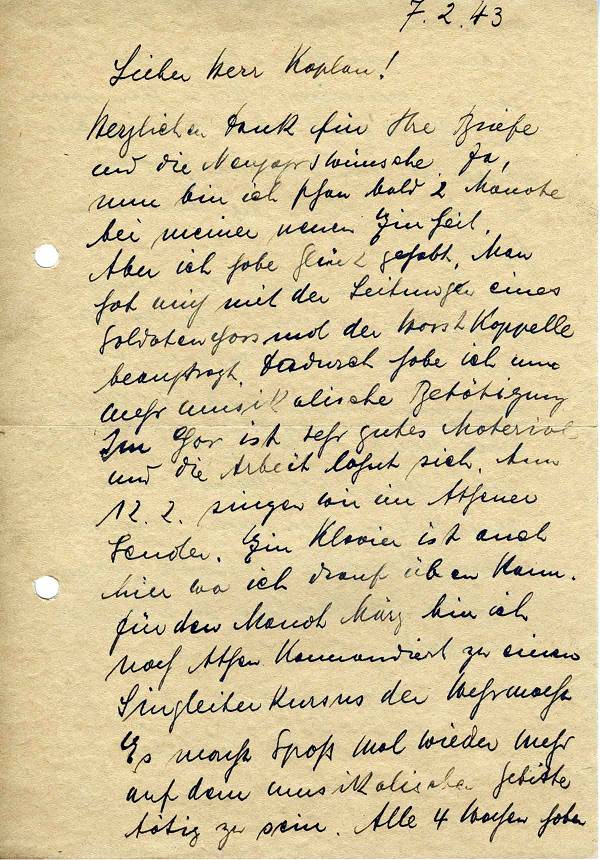 7.2.43
Lieber Herr Kaplan!
Herzlichen Dank für Ihre Briefe
und die Neujahrswünsche. Ja,
nun bin ich schon bald 2 Monate
bei meiner neuen Einheit.
Aber ich habe Glück gehabt. Man
hat mich mit der Leitung eines
Soldatenchors und der
beauftragt. Dadurch habe ich nun
mehr musikalische Betätigung
Im Chor ist sehr gutes Material
und die Arbeit lohnt sich. Am
12.2. singen wir im Athener
Sender. Ein Klavier ist auch
hier wo ich drauf üben kann.
für den Monat März bin ich
nach Athen kommandiert zu einem
Singleiter Kursus der Wehrmacht
Es macht Spaß mal wieder mehr
auf dem musikalischen Gebiete
tätig zu sein. Alle 4 Wochen haben